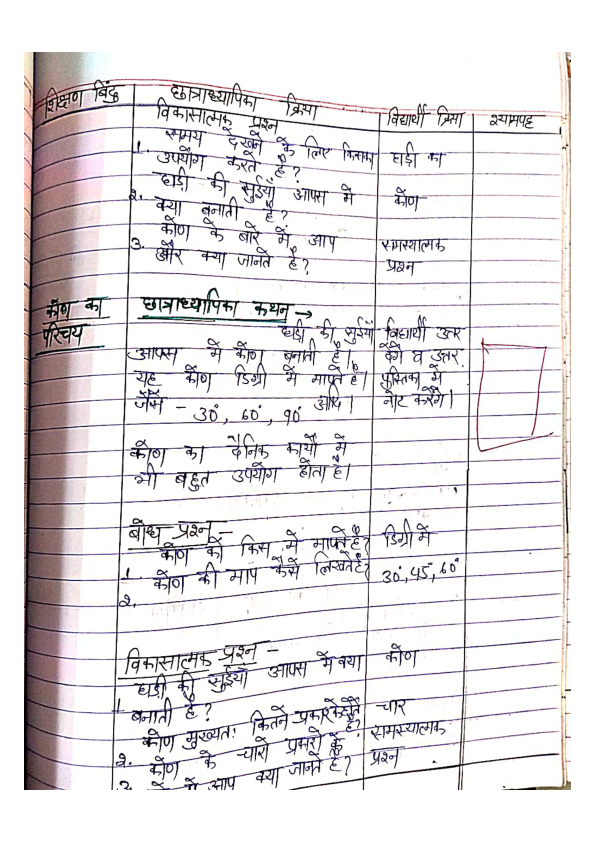 शिक्षण बिंदु
छात्राध्यापिका क्रिया
विद्यार्थी क्रिया
श्यामपट्ट
विकासात्मक प्रश्न
1. समय देखने के लिए किसका
उपयोग करते है?
घड़ी का
2. घड़ी की सुईयाँ आपस में
क्या बनाती है?
कोण
3. कोण के बारे में आप
और क्या जानते है?
समस्यात्मक
प्रश्न
कोण का
परिचय
छात्राध्यापिका कथन →
घड़ी की सुईयाँ
आपस में कोण बनाती है।
यह कोण डिग्री में मापते है।
जैसे - 30°, 60°, 90° आदि।
विद्यार्थी उत्तर
देंगे व उत्तर
पुस्तिका में
नोट करेंगे।
कोण का दैनिक कार्यों में
भी बहुत उपयोग होता है।
बोध प्रश्न -
1. कोण को किस में मापते है?
डिग्री में
2. कोण की माप कैसे लिखते है?
30°, 45°, 60°
विकासात्मक प्रश्न -
1 घड़ी की सुईयाँ आपस में क्या
बनाती है?
कोण
2. कोण मुख्यतः कितने प्रकार के होते है?
चार
3. कोण के चारों प्रकारों के
बारे में आप क्या जानते है?
समस्यात्मक
प्रश्न